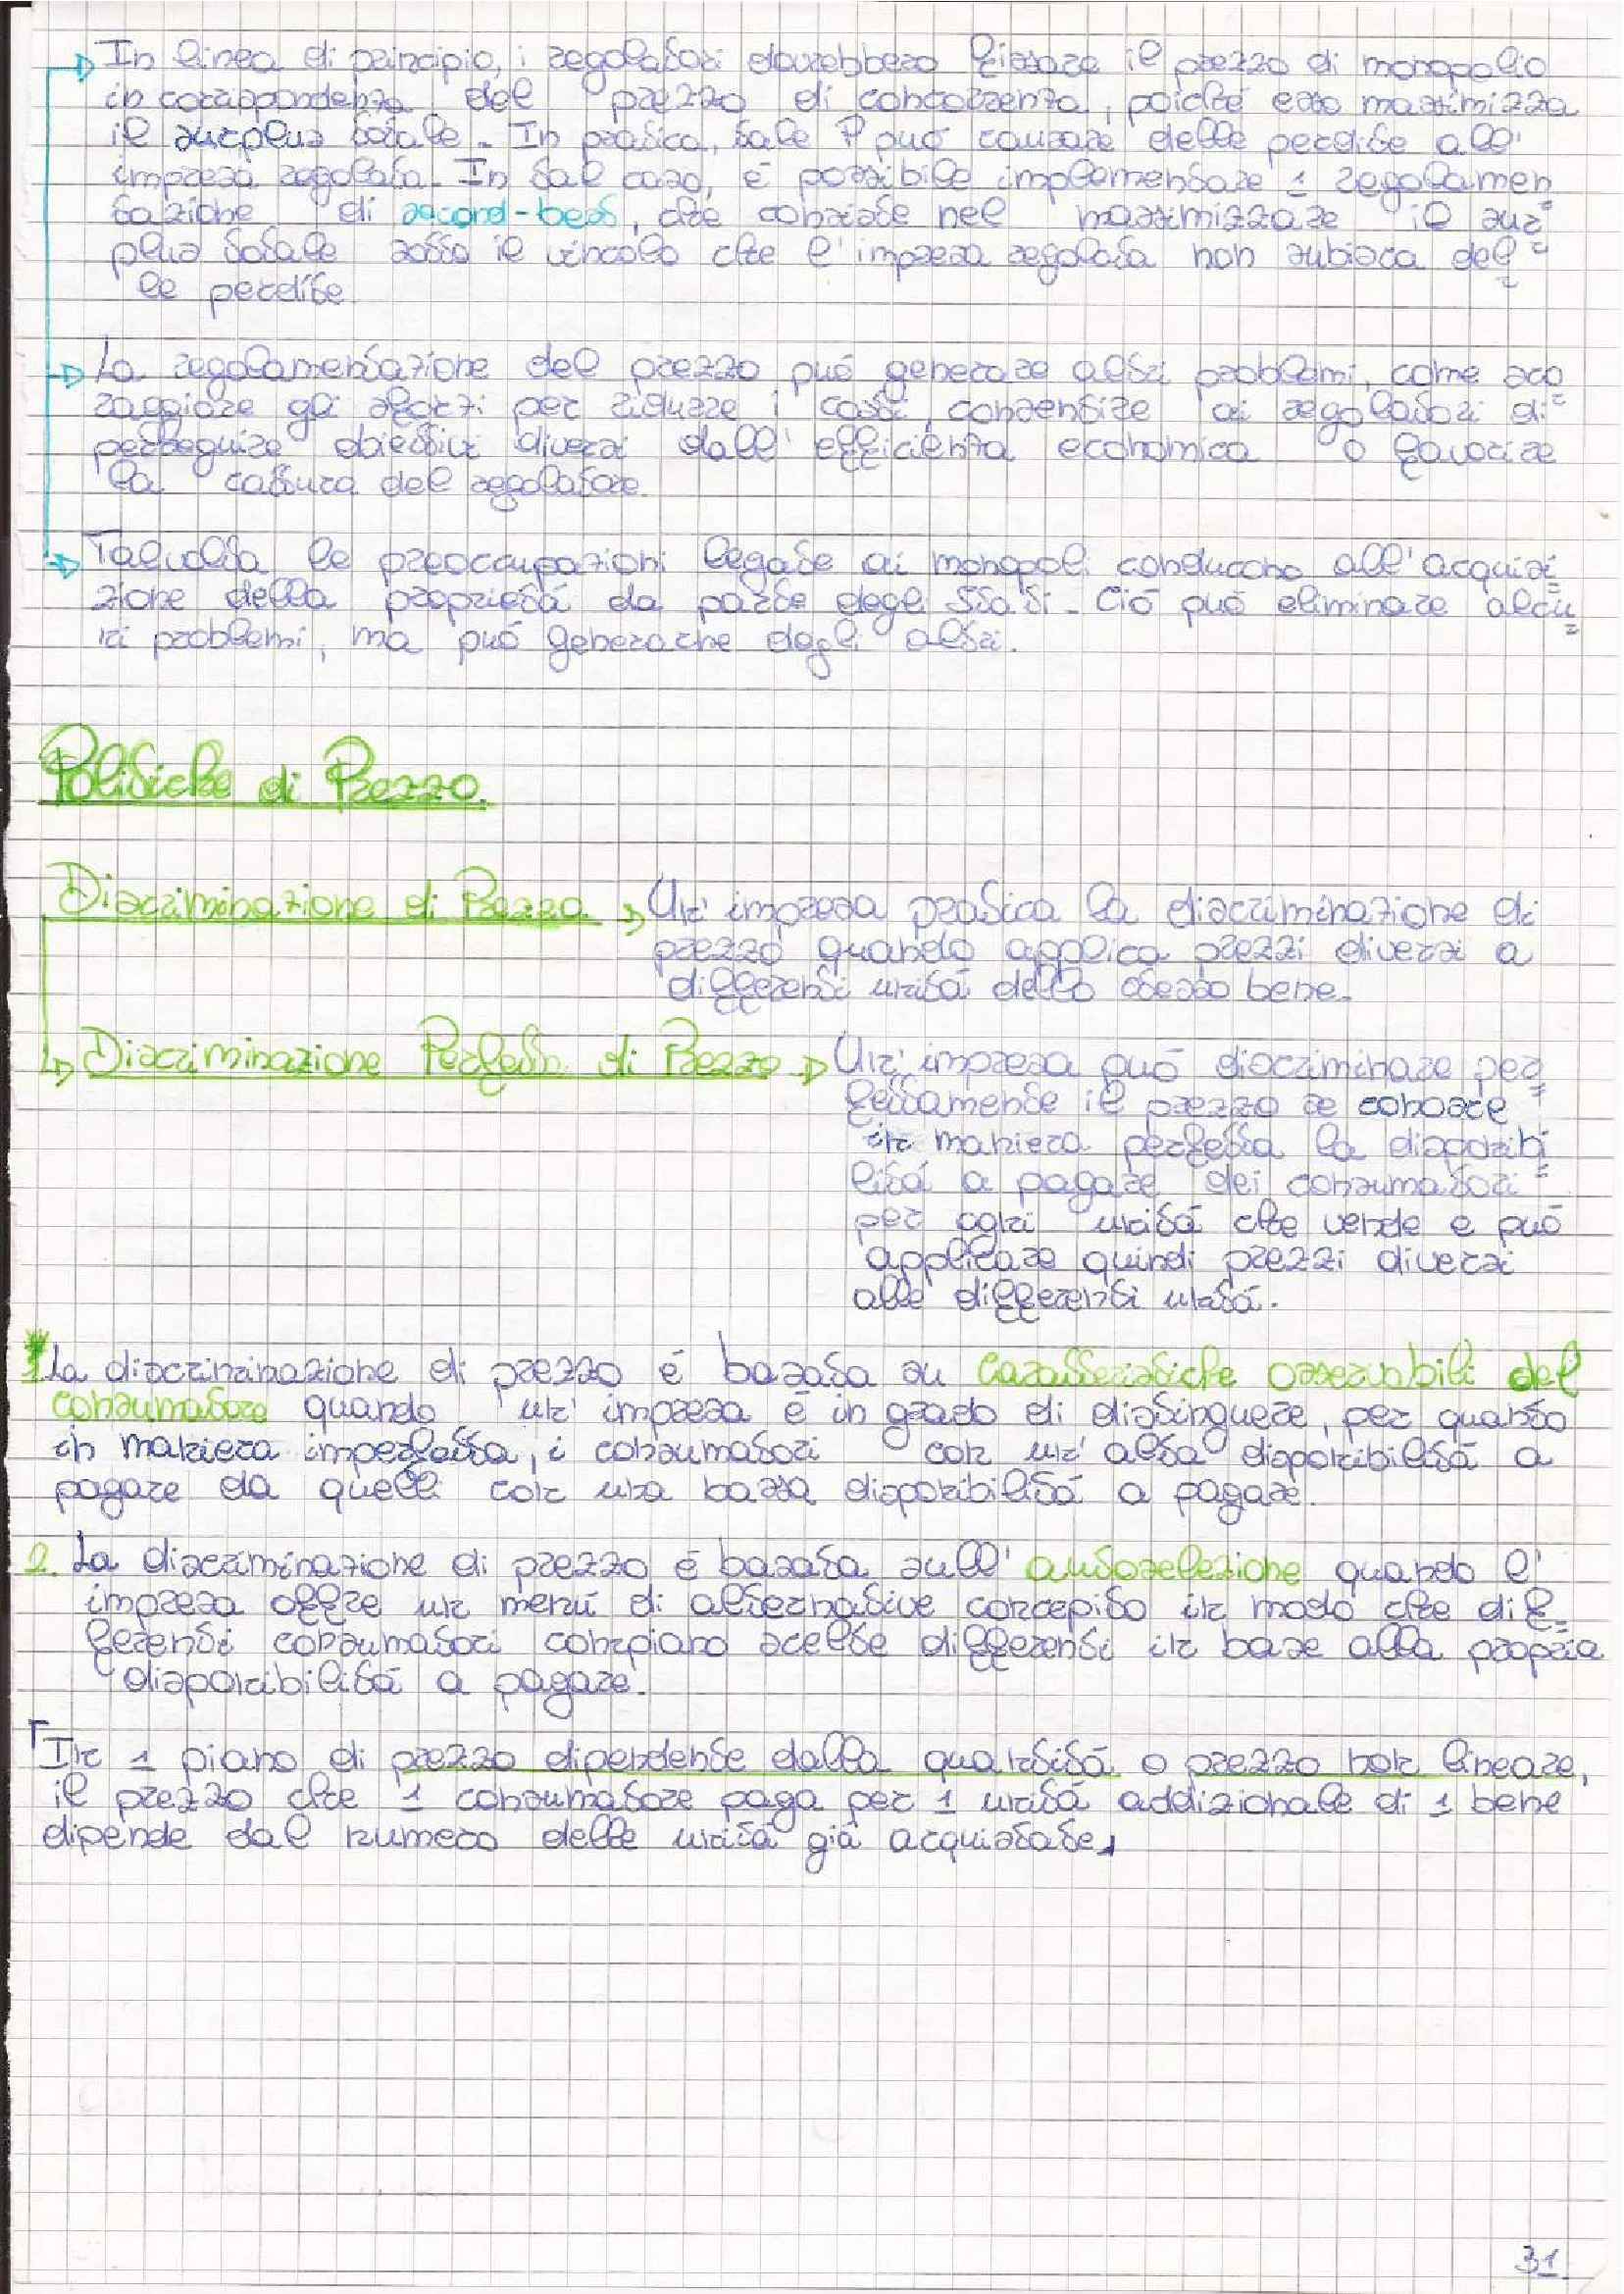 In linea di principio, i regolatori dovrebbero fissare il prezzo di monopolio
in corrispondenza del prezzo di concorrenza, poiché esso massimizza
il surplus totale. In pratica, tale P può causare delle perdite all'
impresa regolata. In tal caso, é possibile implementare 1 regolamen
tazione di second-best, che consiste nel massimizzare il sur
plus totale sotto il vincolo che l'impresa regolata non subisca del
le perdite.
La regolamentazione del prezzo può generare altri problemi, come sco
raggiare gli sforzi per ridurre i costi, consentire ai regolatori di
perseguire obiettivi diversi dall'efficienza economica o favorire
la cattura del regolatore.
Talvolta le preoccupazioni legate ai monopoli conducono all'acquisi
zione della proprietá da parte degli Stati. Ció puó eliminare alcu
ni problemi, ma puó generarne degli altri.
Politiche di Prezzo.
Discriminazione di Prezzo Un' impresa pratica la discriminazione di
prezzo quando applica prezzi diversi a
differenti unitá dello stesso bene.
Discriminazione Perfetta di Prezzo Un' impresa puó discriminare per
fettamente il prezzo se conosce
in maniera perfetta la disponibi
litá a pagare dei consumatori
per ogni unitá che vende e puó
applicare quindi prezzi diversi
alle differenti unitá.
1 La discriminazione di prezzo é basata su caratteristiche osservabili del
consumatore quando un' impresa é in grado di distinguere, per quanto
in maniera imperfetta, i consumatori con un' alta disponibilitá a
pagare da quelli con una bassa disponibilitá a pagare.
2. La discriminazione di prezzo é basata sull' autoselezione quando l'
impresa offre un menú di alternative concepito in modo che dif
ferenti consumatori compiano scelte differenti in base alla propria
disponibilitá a pagare.
In 1 piano di prezzo dipendente dalla quantitá o prezzo non lineare,
il prezzo che 1 consumatore paga per 1 unitá addizionale di 1 bene
dipende dal numero delle unitá giá acquistate.
31